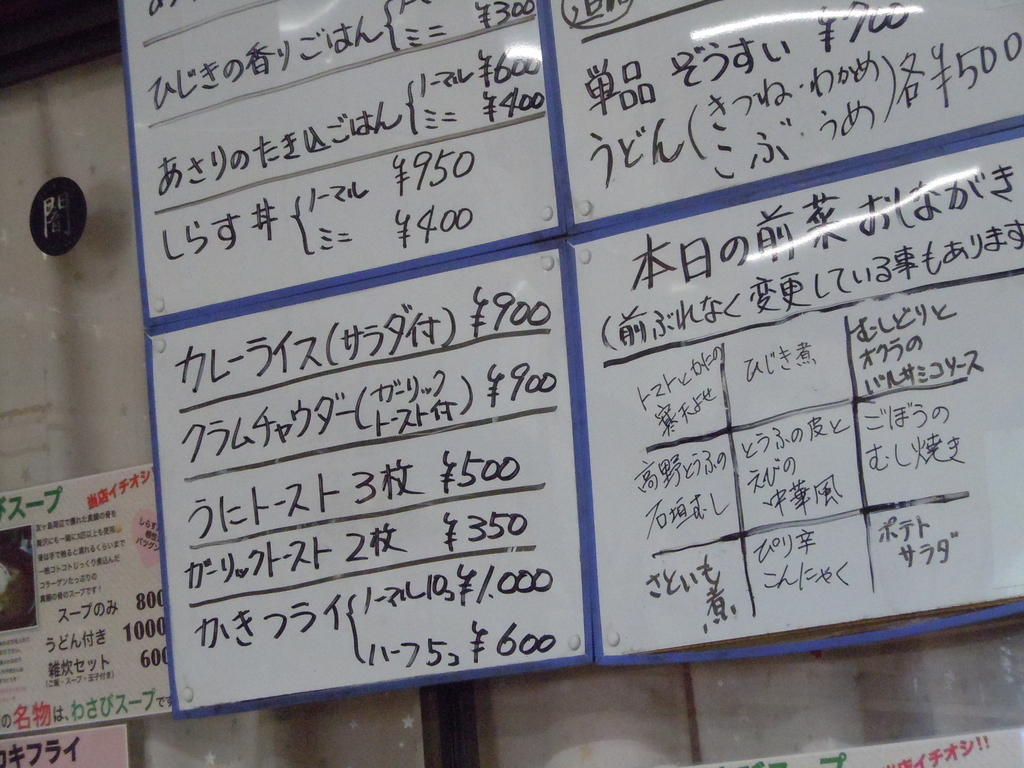 ミニ ¥300
ひじきの香りごはん
あさりのたき込ごはん
ノーマル ¥600
ミニ ¥400
しらす丼
ノーマル ¥950
ミニ ¥400
カレーライス(サラダ付) ¥900
クラムチャウダー(ガーリックトースト付) ¥900
うにトースト 3枚 ¥500
ガーリックトースト 2枚 ¥350
かきフライ
ノーマル10コ ¥1.000
ハーフ5コ ¥600
単品 ぞうすい ¥700
うどん(きつね・わかめ
こぶ・うめ)各¥500
本日の前菜おしながき
(前ぶれなく変更している事もあります
トマトとかにの
寒天よせ
ひじき煮
むしどりと
オクラの
バルサミコソース
高野とうふの
石垣むし
とうふの皮と
えびの
中華風
ごぼうの
むし焼き
さといも
煮
ぴり辛
こんにゃく
ポテト
サラダ
闇
びスープ
当店イチオシ
コラーゲンたっぷりの
真鯛の骨のスープです!
スープのみ 800
うどん付き 1000
雑炊セット 600
(ご飯・スープ・玉子付き)
の名物は、わさびスープです
カキフライ
びスープ
当店イチオシ!!